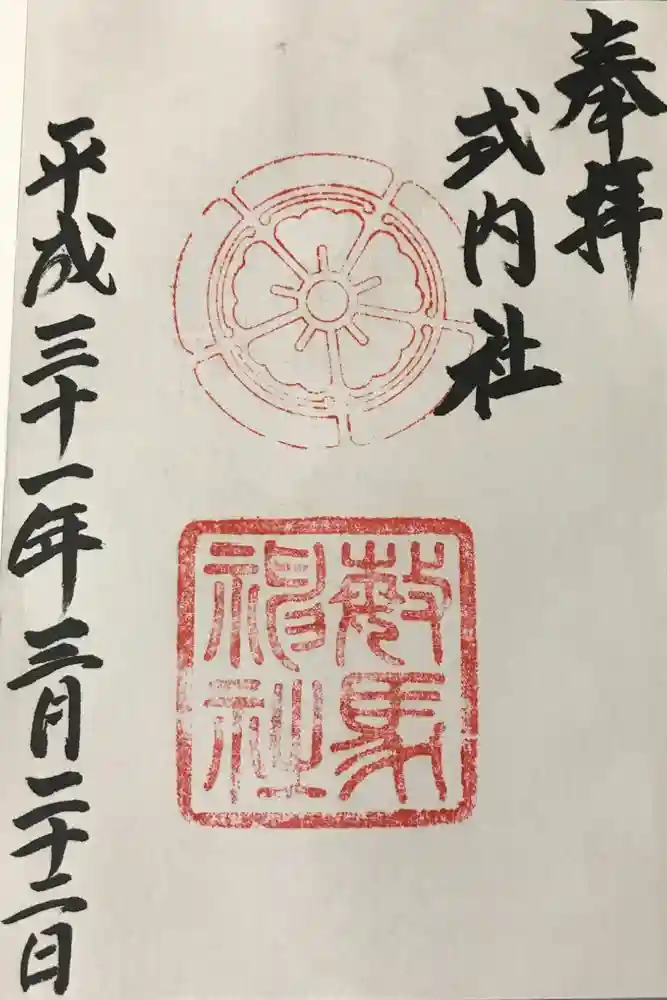 奉拝
式内社
馬
神社
平成三十一年三月二十二日